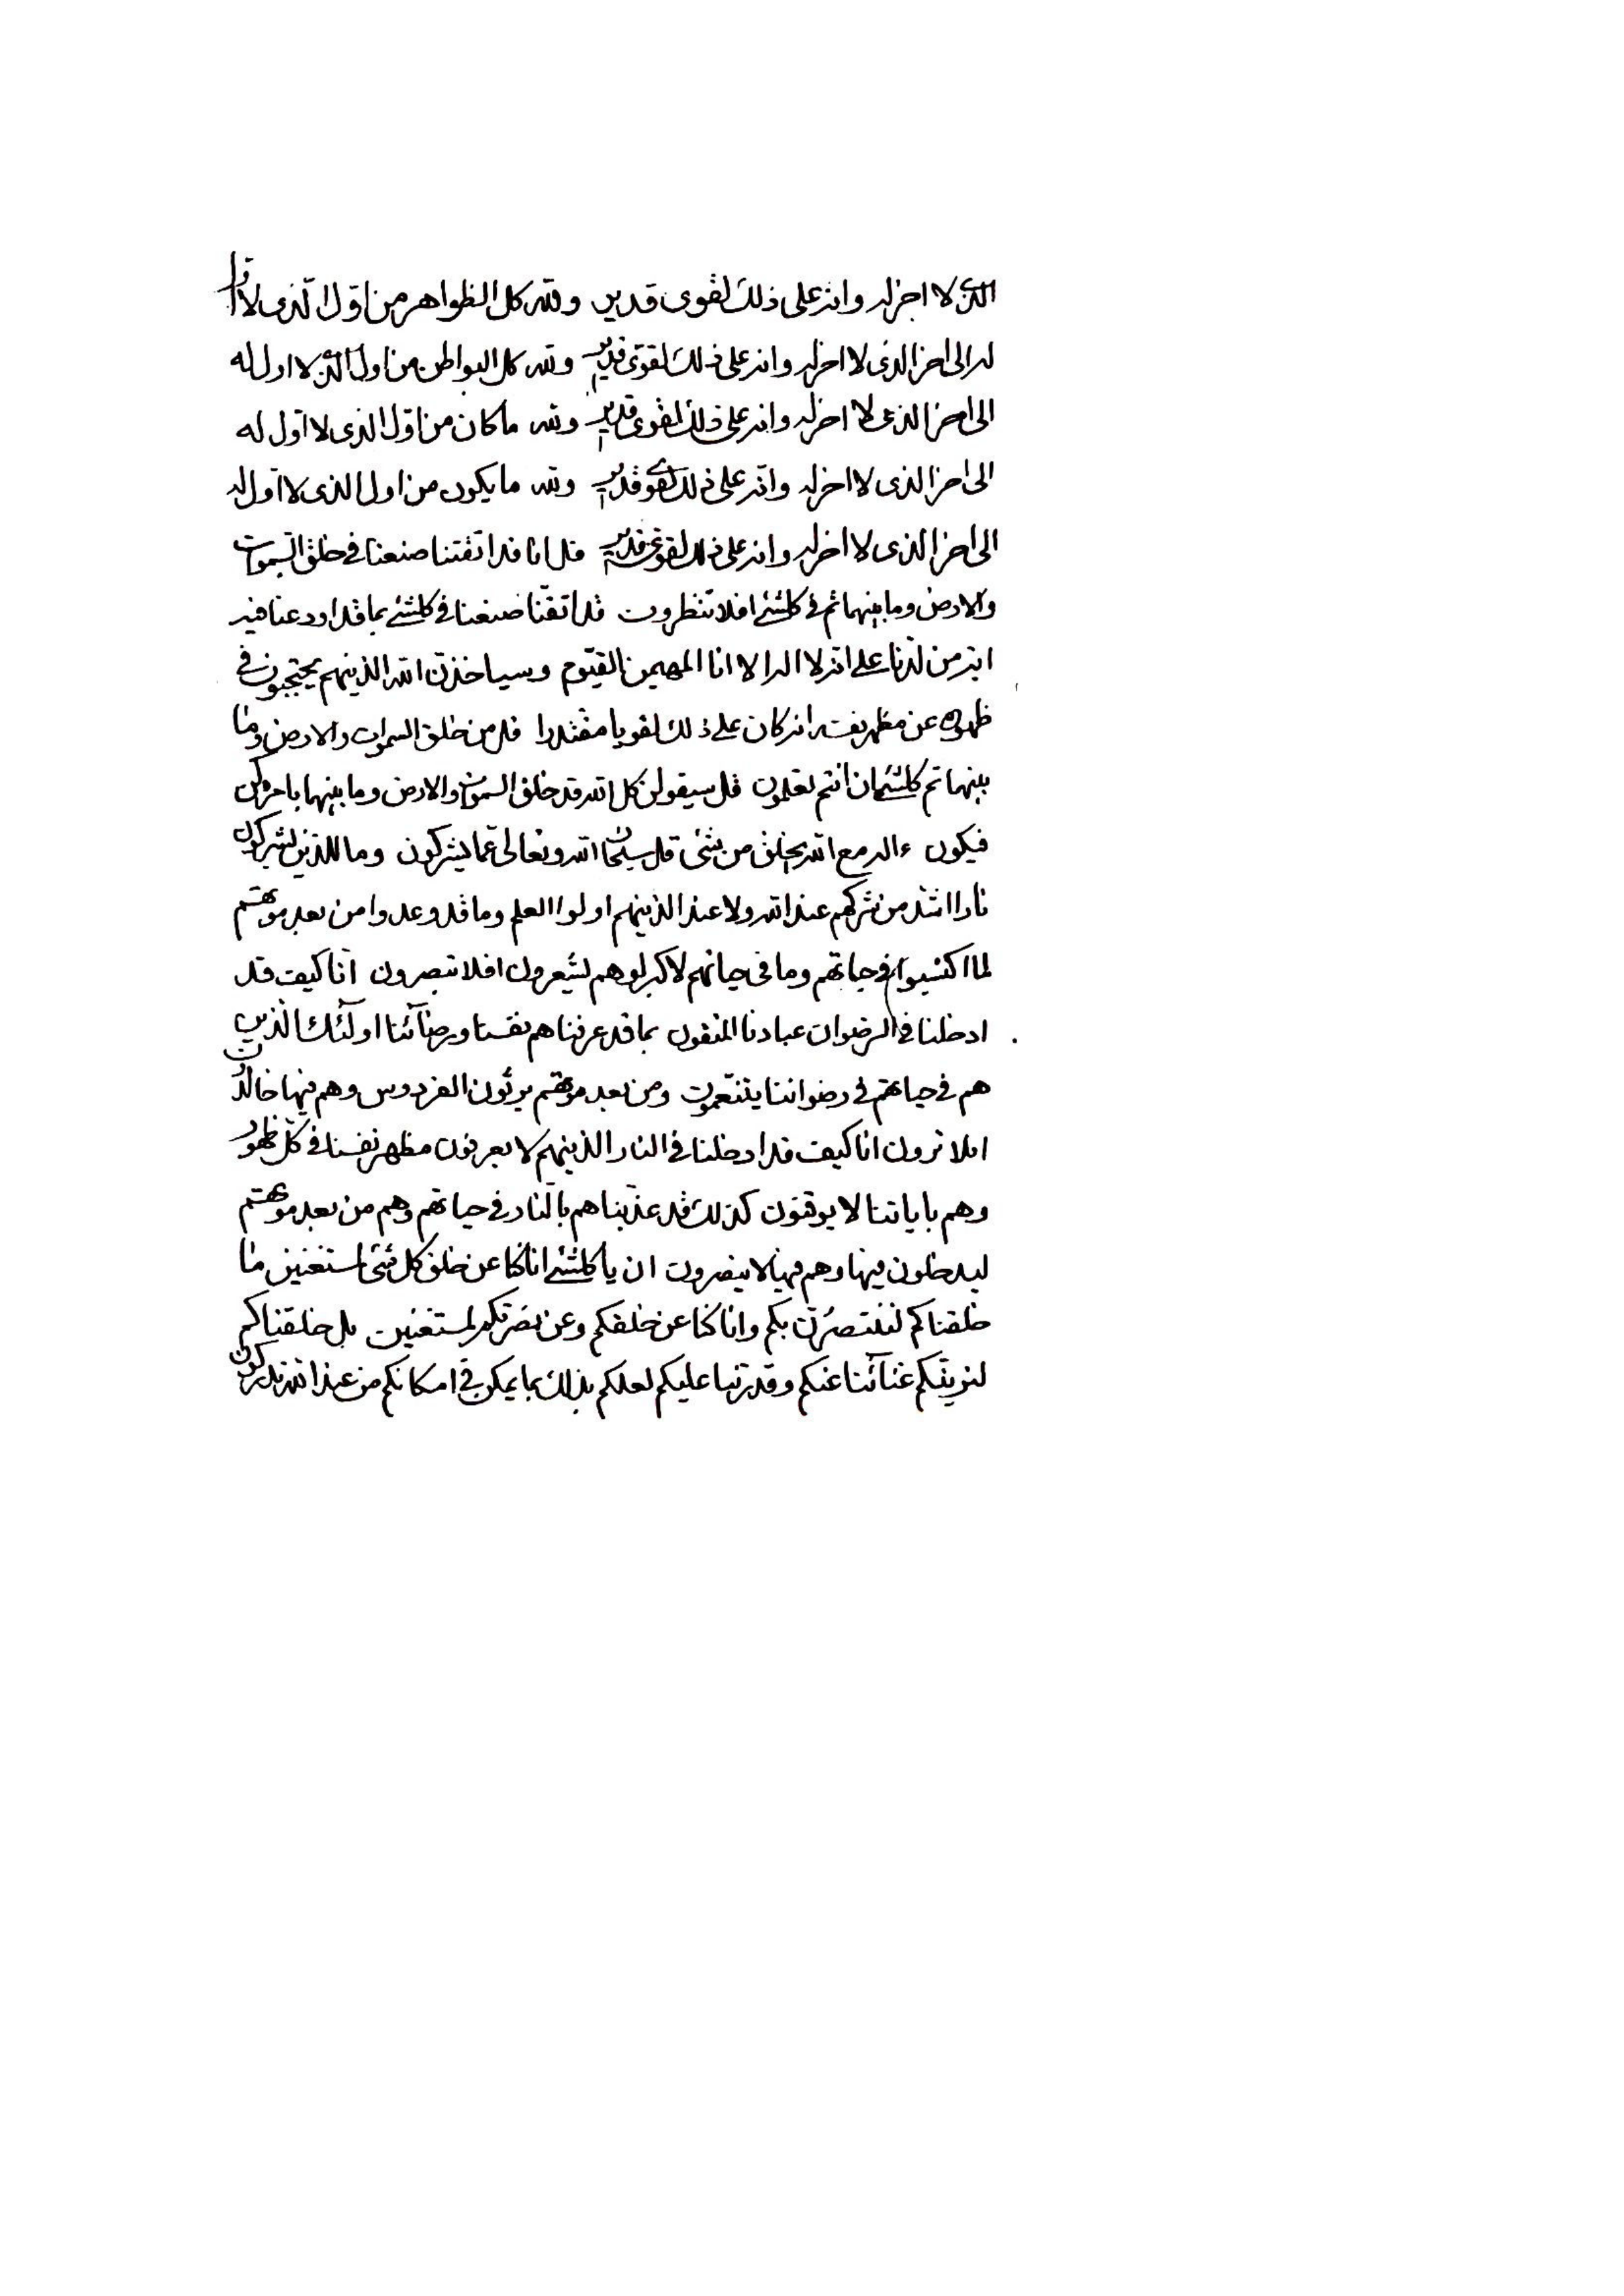 الذی لا اخر له وانه علی ذلک لقوی قدیر ولله کل الظواهر من اول الذی لا اول
له الی اخر الذی لا اخر له وانه علی ذلک لقوی قدیر ولله کل البواطن من اول الذی لا اول له
الی اخر الذی لا اخر له وانه علی ذلک لقوی قدیر ولله ما کان من اول الذی لا اول له
الی اخر الذی لا اخر له وانه علی ذلک لقوی قدیر ولله ما یکون من اول الذی لا اول له
الی اخر الذی لا اخر له وانه علی ذلک لقوی قدیر قل انا قد اتقنا صنعنا فی خلق السموات
والارض وما بینهما ثم فی کلشئ افلا تنظرون قد اتقنا صنعنا فی کلشئ بما قد اودعنا فیه
ایة من لدنا علی انه لا اله الا انا المهیمن القیوم وسیاخذن الله الذینهم یحتجبون فی
ظهوره عن مظهر نفسه انه کان علی ذلک لقویا مقتدرا قل من خلق السموات والارض وما
بینهما ثم کلشئ ان انتم تعلمون قل سیقولن کل الله قد خلق السموات والارض وما بینهما بامره کن
فیکون ءاله مع الله یخلق من شئ قل سبحان الله وتعالی عما یشرکون وما للذین یشرکون
نارا اشد من شرکهم عند الله ولا عند الذینهم اولوا العلم وما قد وعدوا من بعد موتهم
لما اکتسبوا فی حیاتهم وما فی حیاتهم لاکبر لو هم یشعرون افلا تبصرون انا کیف قد
ادخلنا فی الرضوان عبادنا المتقون بما قد عرفناهم نفسنا ورضآئنا اولئک الذین
هم فی حیاتهم فی رضواننا یتنعمون ومن بعد موتهم یرثون الفردوس وهم فیها خالدون
افلا ترون انا کیف قد ادخلنا فی النار الذینهم لا یعرفون مظهر نفسنا فی کل ظهور
وهم بایاتنا لا یوقنون کذلک قد عذبناهم بالنار فی حیاتهم وهم من بعد موتهم
لیدخلون فیها وهم فیها لا ینصرون ان یا کلشئ انا کنا عن خلق کل شئ لمستغنین ما
خلقناکم لننتصرن بکم وانا کنا عن خلقکم وعن نصرتکم لمستغنین بل خلقناکم
لنرینکم غنآئنا عنکم وقدرتنا علیکم لعلکم بذلک بما یمکن فی امکانکم من عند الله تدرکون